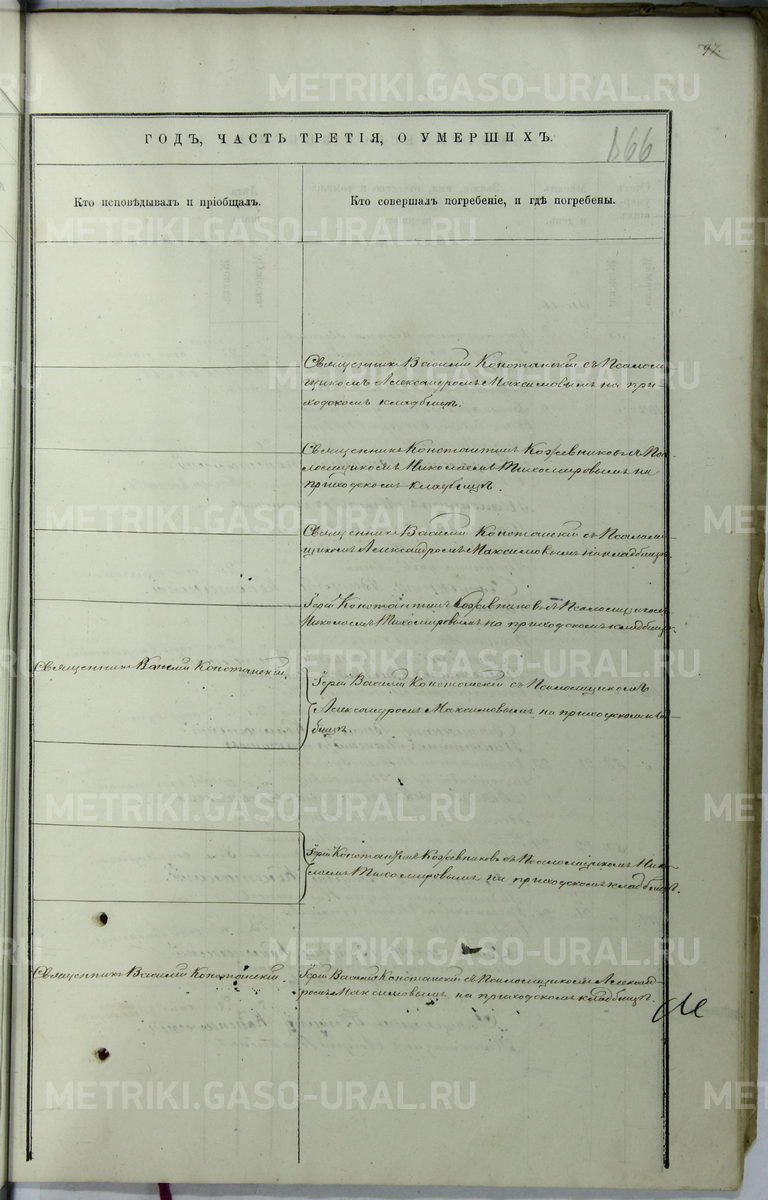 97.
ГОДЪ, ЧАСТЬ ТРЕТІЯ, О УМЕРШИХЪ.
166
Кто исповѣдывалъ и пріобщалъ.
Кто совершалъ погребеніе, и гдѣ погребены.
Священникъ Василій Констанскій съ Псаломщи
щикомъ Александромъ Максимовымъ на при-
ходскомъ кладбищѣ.
Священникъ Константинъ Кожевниковъ съ Пса-
ломщикомъ Николаемъ Тихомировымъ на
приходскомъ кладбищѣ.
Священникъ Василій Констанскій съ Псалом-
щикомъ Александромъ Максимовымъ на кладбищѣ.
Іерей Константинъ Кожевниковъ съ Псаломщикомъ
Николаемъ Тихомировымъ на приходскомъ кладбищѣ.
Священникъ Василій Констанскій.
Іерей Василій Констанскій съ Псаломщикомъ
Александромъ Максимовымъ на приходскомъ клад-
бищѣ.
Іерей Константинъ Кожевниковъ съ Псаломщикомъ Нико-
лаемъ Тихомировымъ на приходскомъ кладбищѣ.
Священникъ Василій Констанскій.
Іерей Василій Констанскій съ Псаломщикомъ Александ-
ромъ Максимовымъ на приходскомъ кладбищѣ.
METRIKI.GASO-URAL.RU
METRIKI.GASO-URAL.RU
METRIKI.GASO-URAL.RU
METRIKI.GASO-URAL.RU
METRIKI.GASO-URAL.RU
METRIKI.GASO-URAL.RU
METRIKI.GASO-URAL.RU
METRIKI.GASO-URAL.RU